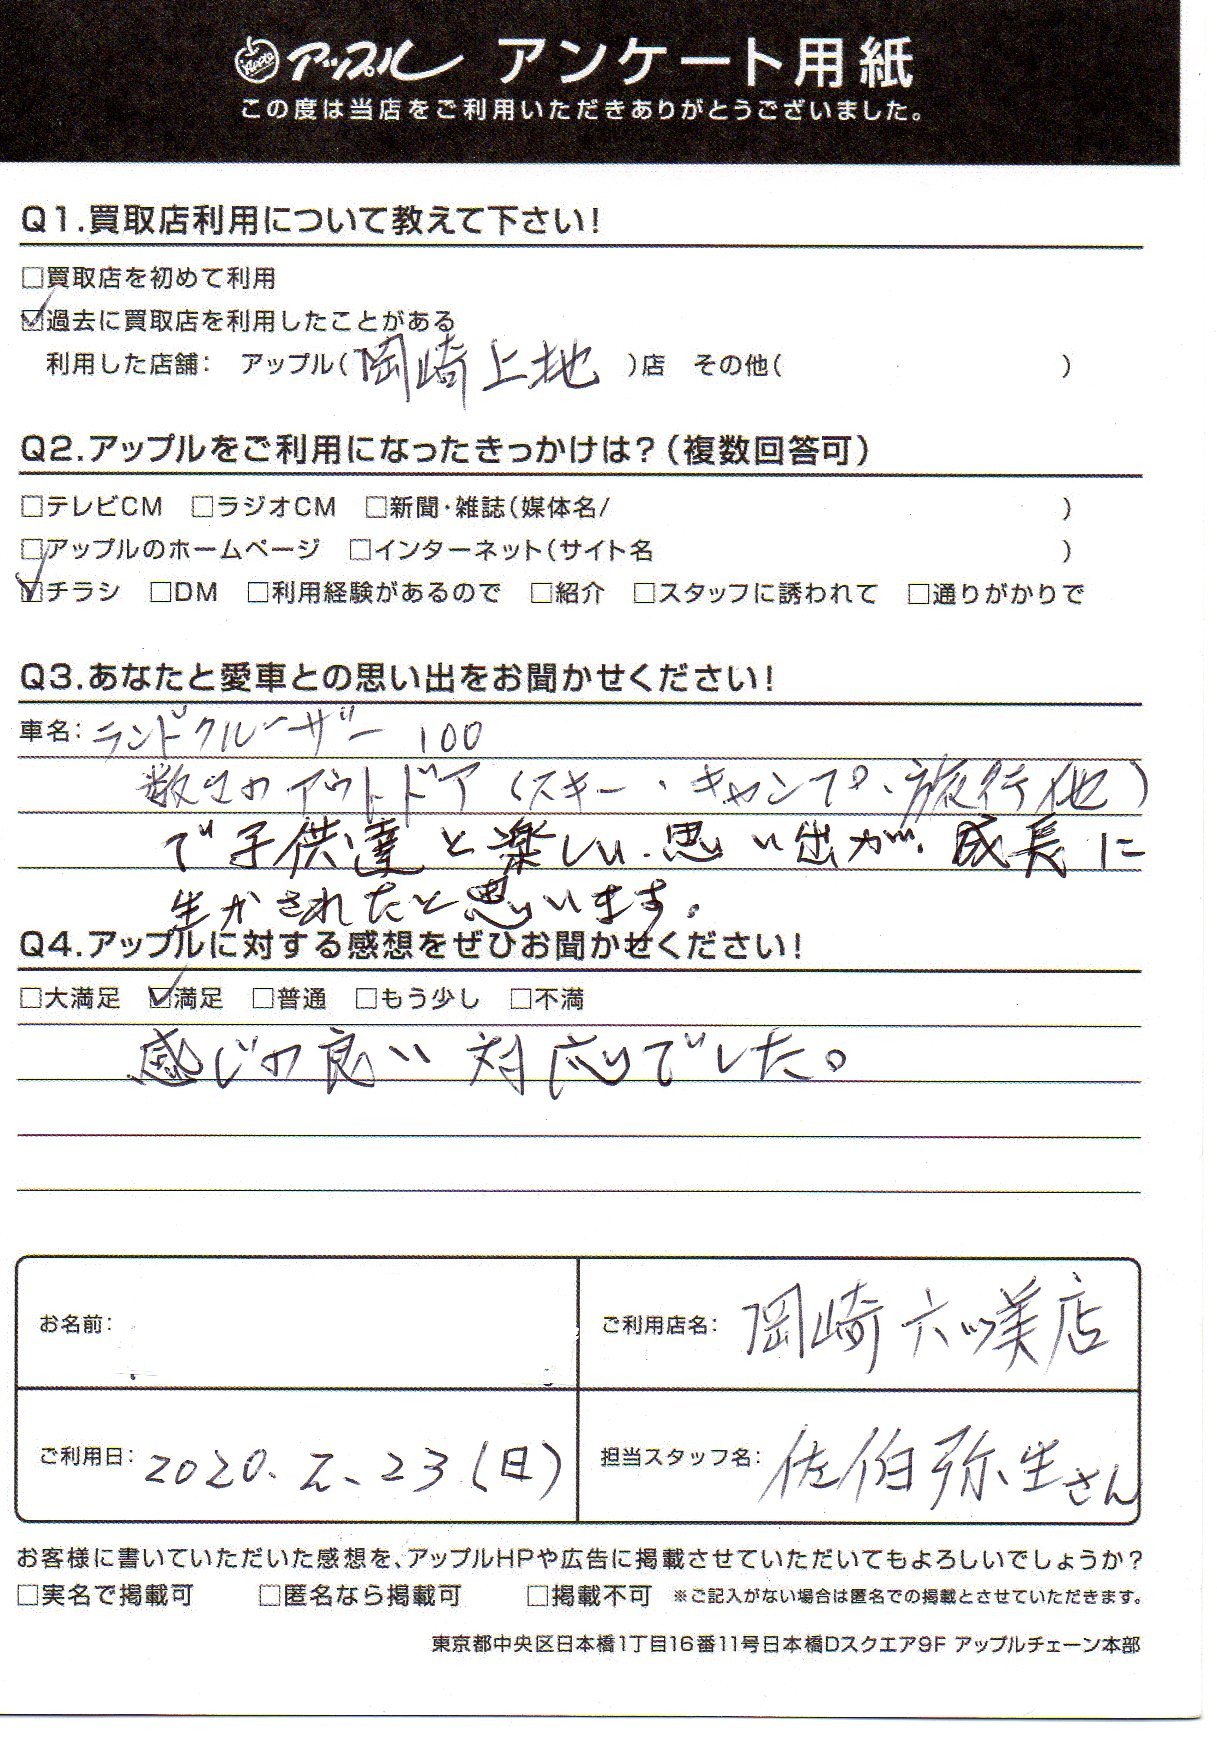 アップル アンケート用紙
この度は当店をご利用いただきありがとうございました。
Q1.買取店利用について教えて下さい!
□買取店を初めて利用
☑過去に買取店を利用したことがある
利用した店舗: アップル(岡崎上地)店 その他( )
Q2.アップルをご利用になったきっかけは?(複数回答可)
□テレビCM □ラジオCM □新聞・雑誌(媒体名/ )
□アップルのホームページ □インターネット(サイト名 )
☑チラシ □DM □利用経験があるので □紹介 □スタッフに誘われて □通りがかりで
Q3.あなたと愛車との思い出をお聞かせください!
車名:ランドクルーザー 100
数々のアウトドア(スキー・キャンプ・旅行他)
で子供達と楽しい思い出が、成長に
生かされたと思います。
Q4.アップルに対する感想をぜひお聞かせください!
□大満足 ☑満足 □普通 □もう少し □不満
感じの良い対応でした。
お名前:
ご利用店名: 岡崎六ッ美店
ご利用日: 2020.2.23(日)
担当スタッフ名: 佐伯弥生さん
お客様に書いていただいた感想を、アップルHPや広告に掲載させていただいてもよろしいでしょうか?
□実名で掲載可 □匿名なら掲載可 □掲載不可 ※ご記入がない場合は匿名での掲載とさせていただきます。
東京都中央区日本橋1丁目16番11号日本橋Dスクエア9F アップルチェーン本部